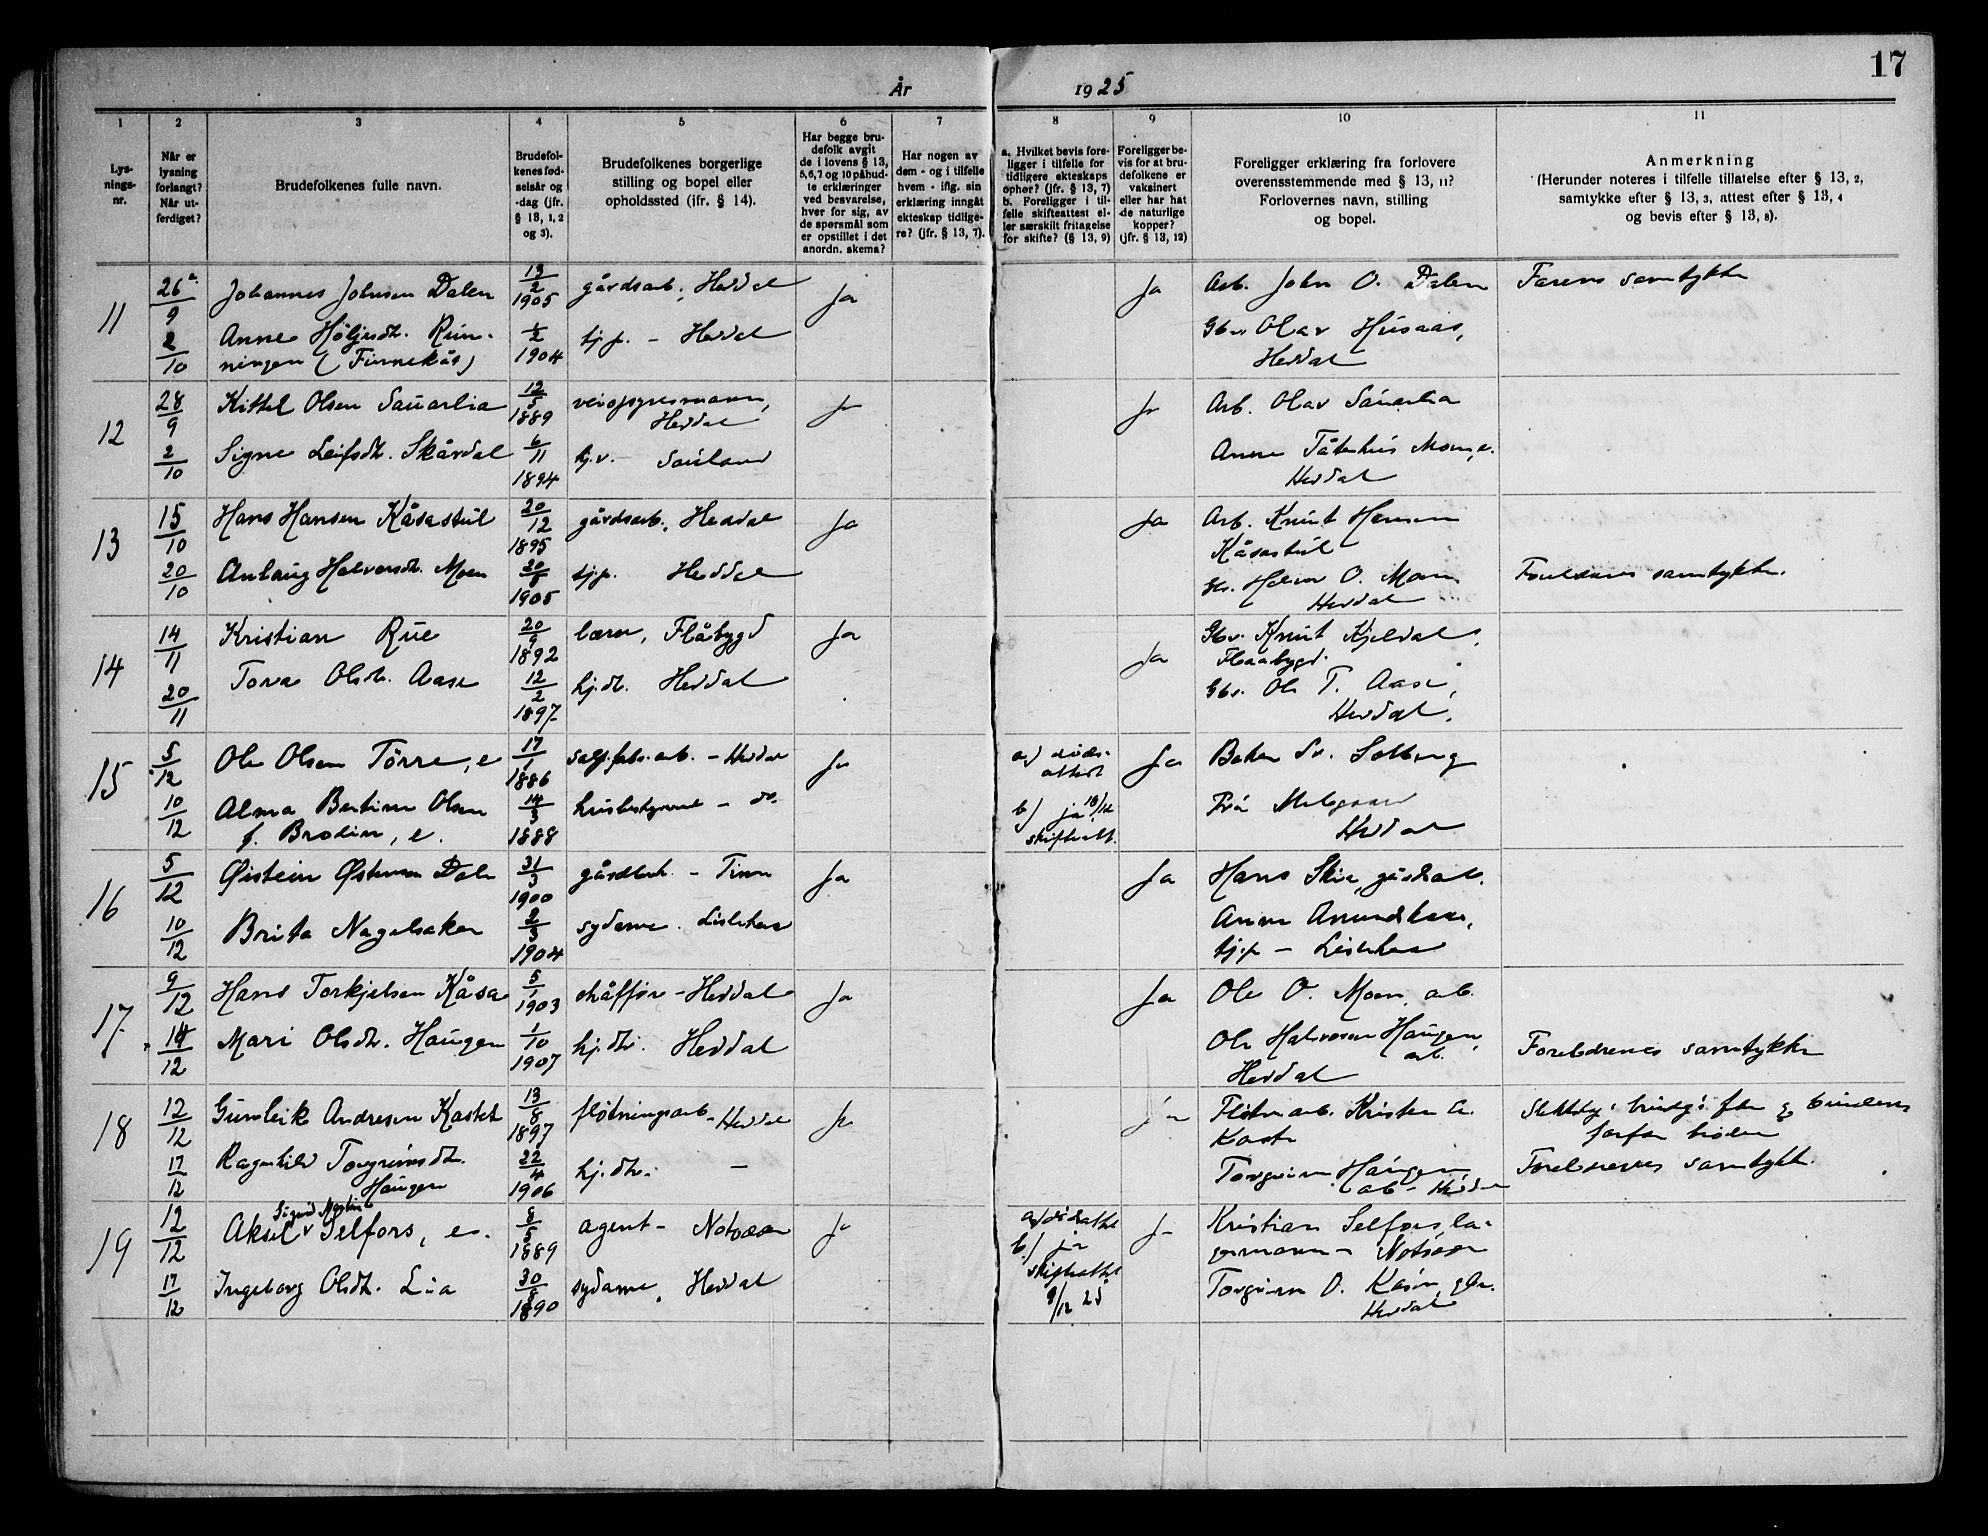 17
År 1925
1 2 3 4 5 6 7 8 9 10 11
Lysnings-nr.
Når er lysning forlangt? Når utferdiget?
Brudefolkenes fulle navn.
Brudefolkenes fødselsår og -dag (jfr. § 13, 1, 2 og 3).
Brudefolkenes borgerlige stilling og bopel eller opholdssted (ifr. § 14).
Har begge brudefolk avgit de i lovens § 13, 5, 6, 7 og 10 påbudte erklæringer ved besvarelse, hver for sig, av de spørsmål som er opstillet i det anordn. skema?
Har nogen av dem - og i tilfelle hvem - iflg. sin erklæring inngåt ekteskap tidligere? (jfr. § 13, 7).
a. Hvilket bevis foreligger i tilfelle for tidligere ekteskaps ophør? (jfr. § 13, 7) b. Foreligger i tilfelle skifteattest eller særskilt fritagelse for skifte? (§ 13, 9)
Foreligger bevis for at brudefolkene er vaksinert eller har hat de naturlige kopper? (jfr. § 13, 12)
Foreligger erklæring fra forlovere overensstemmende med § 13, 11? Forlovernes navn, stilling og bopel.
Anmerkning (Herunder noteres i tilfelle tillatelse efter § 13, 2, samtykke efter § 13, 3, attest efter § 13, 4 og bevis efter § 13, 8).
11 26/9 Johannes Johnsen Dalen 13/2 1905 gårdsarb., Heddal Ja Ja Arb. John O. Dalen Farens samtykke
2/10 Anne Höljesdt. Run- 1/2 1904 tj.p. - Heddal Gbr Olav Husaas,
ningen (Finnekås) Heddal
12 28/9 Kittel Olsen Sauarlia 12/5 1889 veiopsynsmann, Ja Ja Arb. Olav Sauarlia
Heddal
2/10 Signe Leifsdt. Skårdal 6/11 1894 tj.v. Sauland Anne Moen, e.
Heddal
13 15/10 Hans Hansen Kåsastul 20/12 1895 gårdsarb., Heddal Ja Ja Arb. Knut Hansen
Kåsastul
20/10 Anlaug Halvorsdt. Moen 1905 tj.p. Heddal Halvor O. Moen Foreldrenes samtykke.
Heddal
14 14/11 Kristian Rue 20/9 1892 lærer, Flåbygd Ja Ja Gbr. Knut Kjeldal,
Flaabygd.
20/11 Tora Olsdt. Aase 12/2 1897 hj.dt. Heddal Gbr. Ole T. Aase,
Heddal.
15 5/12 Ole Olsen Tørre, e 17/1 1886 salp.fabr.arb. - Heddal Ja a) døds-attest Ja Baker Sv. Solberg
10/12 Alma Bertine Olsen 14/3 1888 husbestyrerinne - do. b) ja skifteatt. Fru Melgaard
f. Brodin, e. Heddal
16 5/12 Øistein Østensen Dale 31/3 1900 - Tinn Ja Ja Hans Skie, gårdarb.
10/12 Brita Nagelsaker 2/3 1904 sydame. Lisleherad Anne
tj.p - Lisleherad
17 9/12 Hans Torkjelsen Kåsa 5/1 1903 chåffør - Heddal Ja Ja Ole O. Moen, arb.
14/12 Mari Olsdt. Haugen 1/10 1907 hj.dt. Heddal Ole Halvorsen Haugen, Foreldrenes samtykke
arb.
Heddal
18 12/12 Gunleik Andresen Kastet 13/8 1897 fløtningsarb - Heddal Ja Ja Fløtn.arb. Kristen A. Slektsk.: brudg's far og brudens
Kaste farfar brødre
17/12 Ragnhild Torgrimsdt. 22/4 1906 hj.dt. - Torgrim Haugen Foreldrenes samtykke.
Haugen arb - Heddal
19 12/12 Aksel Sigurd Martin Selfors, e. 8/5 1889 agent - Notodden Ja a) b) ja skifteattest 9/12 25 Ja Kristian Selfors, la-
germann - Notodden
17/12 Ingeborg Olsdt. Lia 30/8 1890 sydame, Heddal Torgrim O. Kåsin, gbr.
Heddal